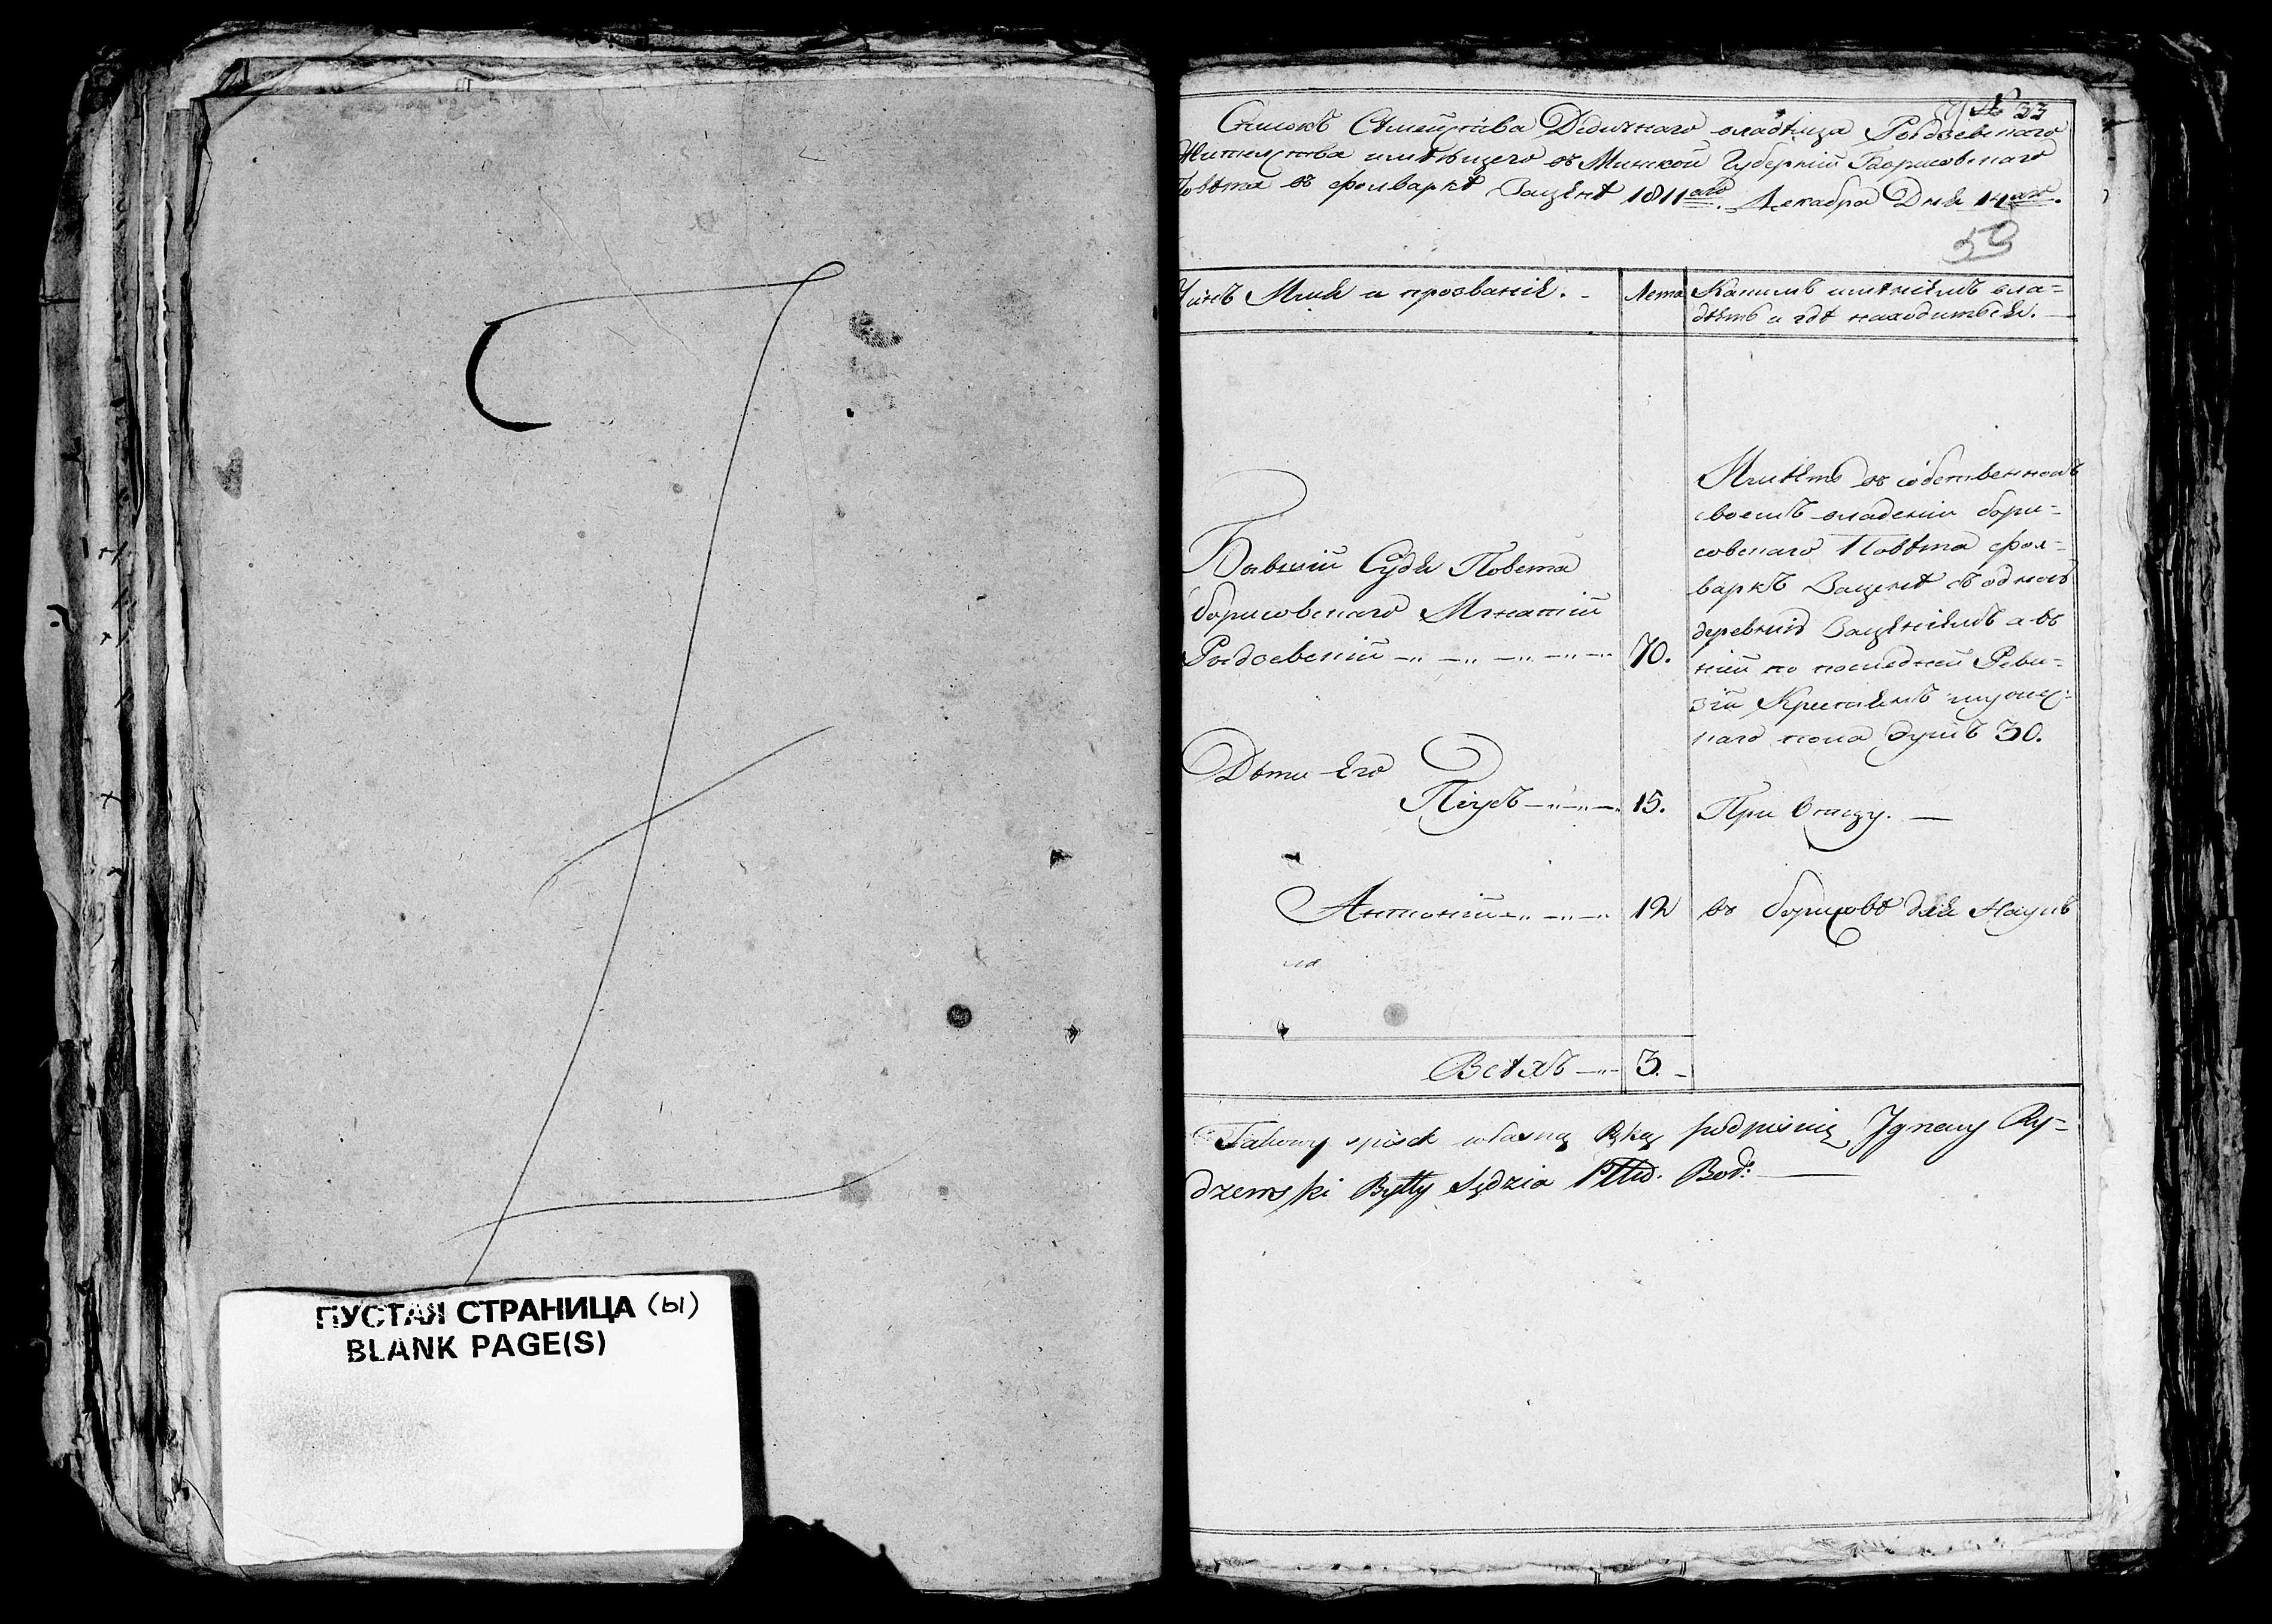 № 33
Списокъ Семейства Дѣдичнаго владѣльца Рыдзевскаго
Жительства имѣющего въ Минской Губерніи Борисовскаго
Повѣта въ фольваркѣ Зацѣнѣ 1811аго Декабра Дня 14аго.
59
Чинъ Имя и прозваніе.
Лета
Какимъ имѣніемъ вла=
дѣетъ и гдѣ находитьсѧ.
Бывшій Судя Повета
борисовскаго Игнатій
Рыдзевскій
70.
Имѣетъ въ собственномъ
своемъ владеніи бори=
совскаго Повѣта фол=
варкъ Заценѣ съ одной
деревнѣй а въ
ній по последней Реви=
зіи Крестянъ мужес=
каго пола Душъ 30.
Дѣти Его
Піусъ
15.
При Отцу.
Антоній
12
въ борисовѣ для Наукъ
Всѣхъ
3.
Takowy spisek własną Ręką podpisuię Jgnacy Ry=
dzewski Bylły Sędzia Pttu. Bor:
ПУСТАЯ СТРАНИЦА (ы)
BLANK PAGE(S)